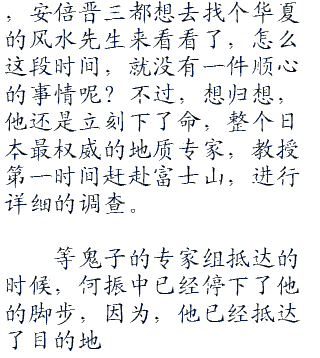 ，安倍晋三都想去找个华夏
的风水先生来看看了，怎么
这段时间，就没有一件顺心
的事情呢？不过，想归想，
他还是立刻下了命，整个日
本最权威的地质专家，教授
第一时间赶赴富士山，进行
详细的调查。
等鬼子的专家组抵达的
时候，何振中已经停下了他
的脚步，因为，他已经抵达
了目的地